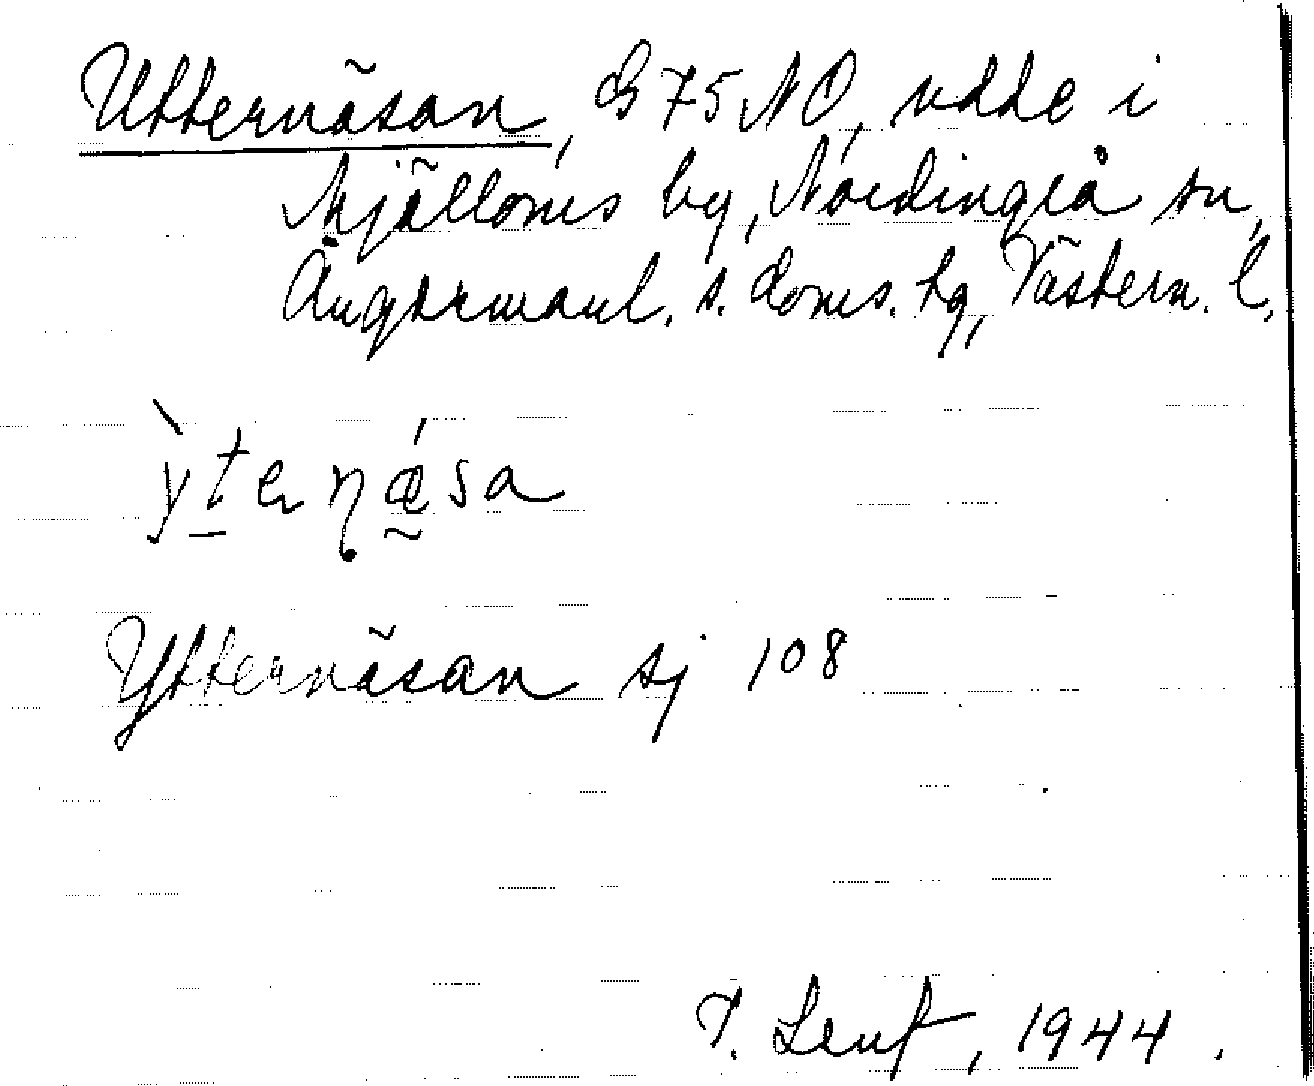 Utternäsan, G 75 NO, udde i
Mjälloms by, Nordingrå sn,
Ångermanl. s. doms. hg, Västern. l.
ỳtenǽsa
Ytternäsan sj 108
1944.